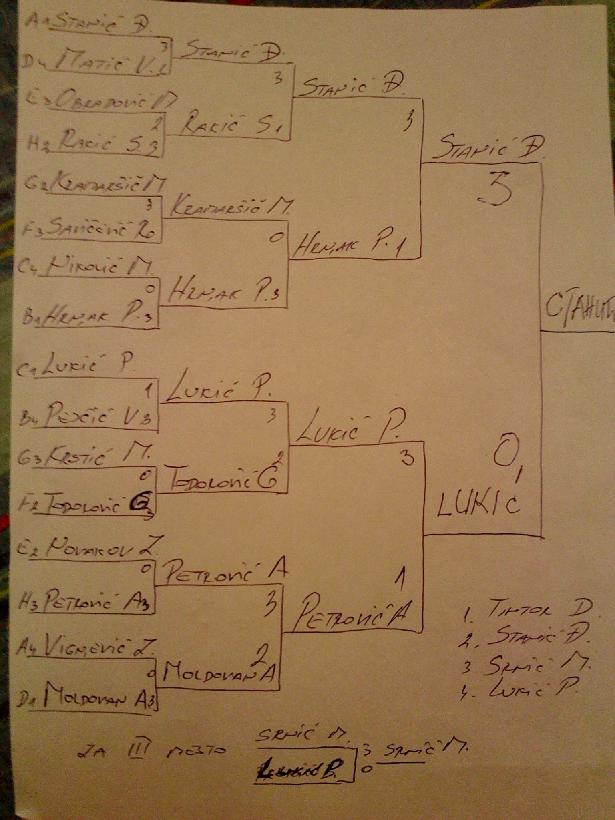 A1 STANIĆ Đ.
3
D4 MATIĆ V.
E3 OBRADOVIĆ M
2
H2 RAKIĆ S. 3
G2 KRAMARŠIĆ M
3
F3
0
C4 NIKOLIĆ M.
0
B1 HRNJAK P. 3
C1 LUKIĆ P.
1
B4 PEJČIĆ V 3
G3 KRSTIĆ M.
0
F2 TODOROVIĆ G
3
E2 NOVAKOV Z.
0
H3 PETROVIĆ A 3
A4 VIGNJEVIĆ Z.
0
D1 MOLDOVAN A 3
STANIĆ Đ.
3
RAKIĆ S. 1
KRAMARŠIĆ M.
0
HRNJAK P. 3
LUKIĆ P.
3
2
TODOROVIĆ G
PETROVIĆ A
3
2
MOLDOVAN A
STANIĆ Đ.
3
HRNJAK P. 1
LUKIĆ P.
3
1
PETROVIĆ A
STANIĆ Đ.
3
0
LUKIĆ
1. TINTOR D.
2. STANIĆ Đ.
3 SRNIĆ M.
4. LUKIĆ P.
ZA III MESTO
SRNIĆ M.
3 SRNIĆ M.
LUKIĆ P. 0